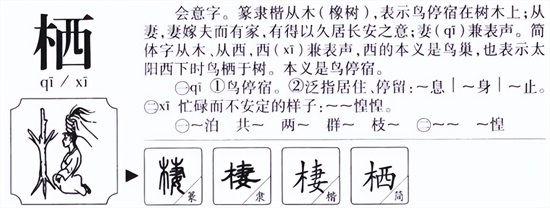 栖
qī / xī
会意字。篆隶楷从木(橡树),表示鸟停宿在树木上;从
妻,妻嫁夫而有家,有得以久居长安之意;妻(qī)兼表声。简
体字从木、从西,西(xī)兼表声,西的本义是鸟巢,也表示太
阳西下时鸟栖于树。本义是鸟停宿。
㊀qī ①鸟停宿。②泛指居住、停留:~息│~身│~止。
㊁xī 忙碌而不安定的样子:~~惶惶。
㊀~泊 共~ 两~ 群~ 枝~ ㊁~~ ~惶
棲 篆
棲 隶
棲 楷
栖 简